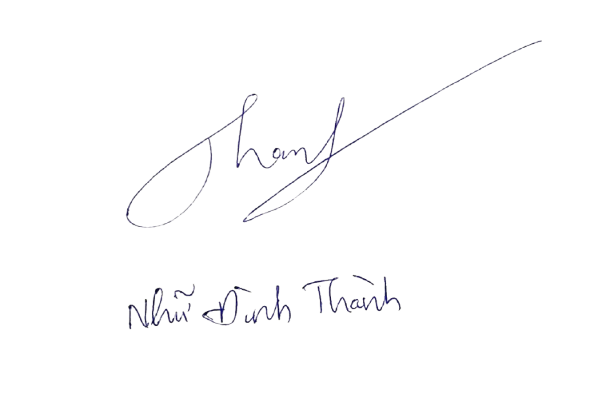 Thanh
Nhữ Đình Thành